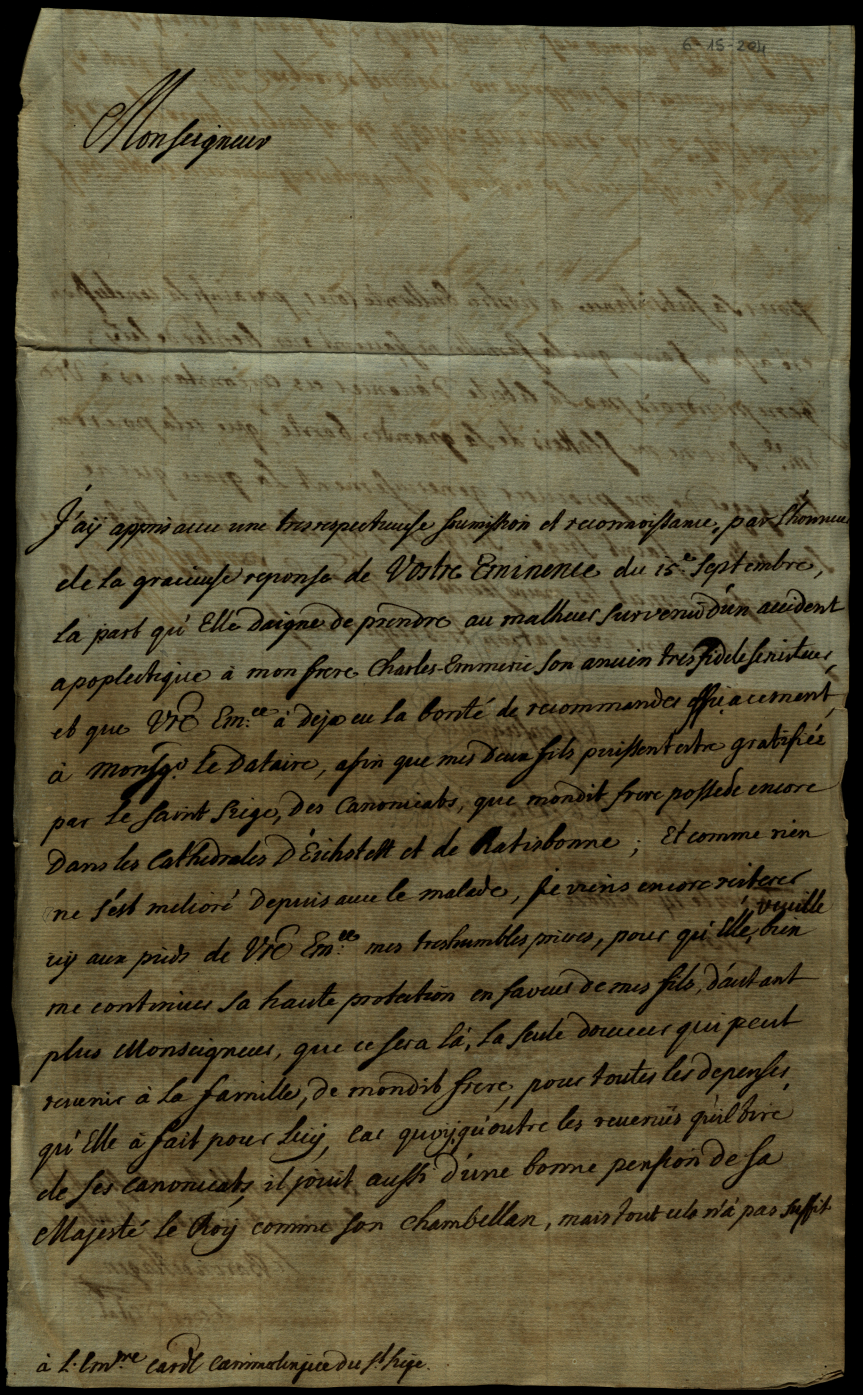 6-15-204
Monseigneur
J'aÿ appris avec une tresrespectueuse soumission et reconnoissance, par l'honneur
de la gracieuse reponse de Vostre Eminence du 15e Septembre,
la part qu'Elle daigne de prendre au malheur survenû d'ún accident
apoplectique à mon frere Charles-Emmeric son ancien tres fidele serviteur,
et que Vre Em:ce à deja eu la bonté de recommander efficacement
à Monsgr le Dataire, afin que mes deux fils puissent estre gratifiée
par le Saint Siege, des Canonicats, que mondit frere possede encore
dans les Cathedrales d'Eichstett et de Ratisbonne; Et comme rien
ne s'est melioré depuis avec le malade, je viens encore reiterer
icÿ aux pieds de Vre Em:ce mes treshumbles prieres, pour qu'Elle veuille bien
me continuer sa haute protection en faveur de mes fils, d'autant
plus Monseigneur, que ce sera là, la seule douceur qui peut
revenir à la famille, de mondit frere, pour toutes les depenses,
qu'Elle à fait pour luÿ, car quoÿqu'outre les revenüs qu'il tire
de ses canonicats, il jouit aussi d'une bonne pension de sa
Majesté le Roÿ comme son chambellan, mais tout cela n'à pas suffit
à L. Emnre Cardl Camerlingue du St Siege.